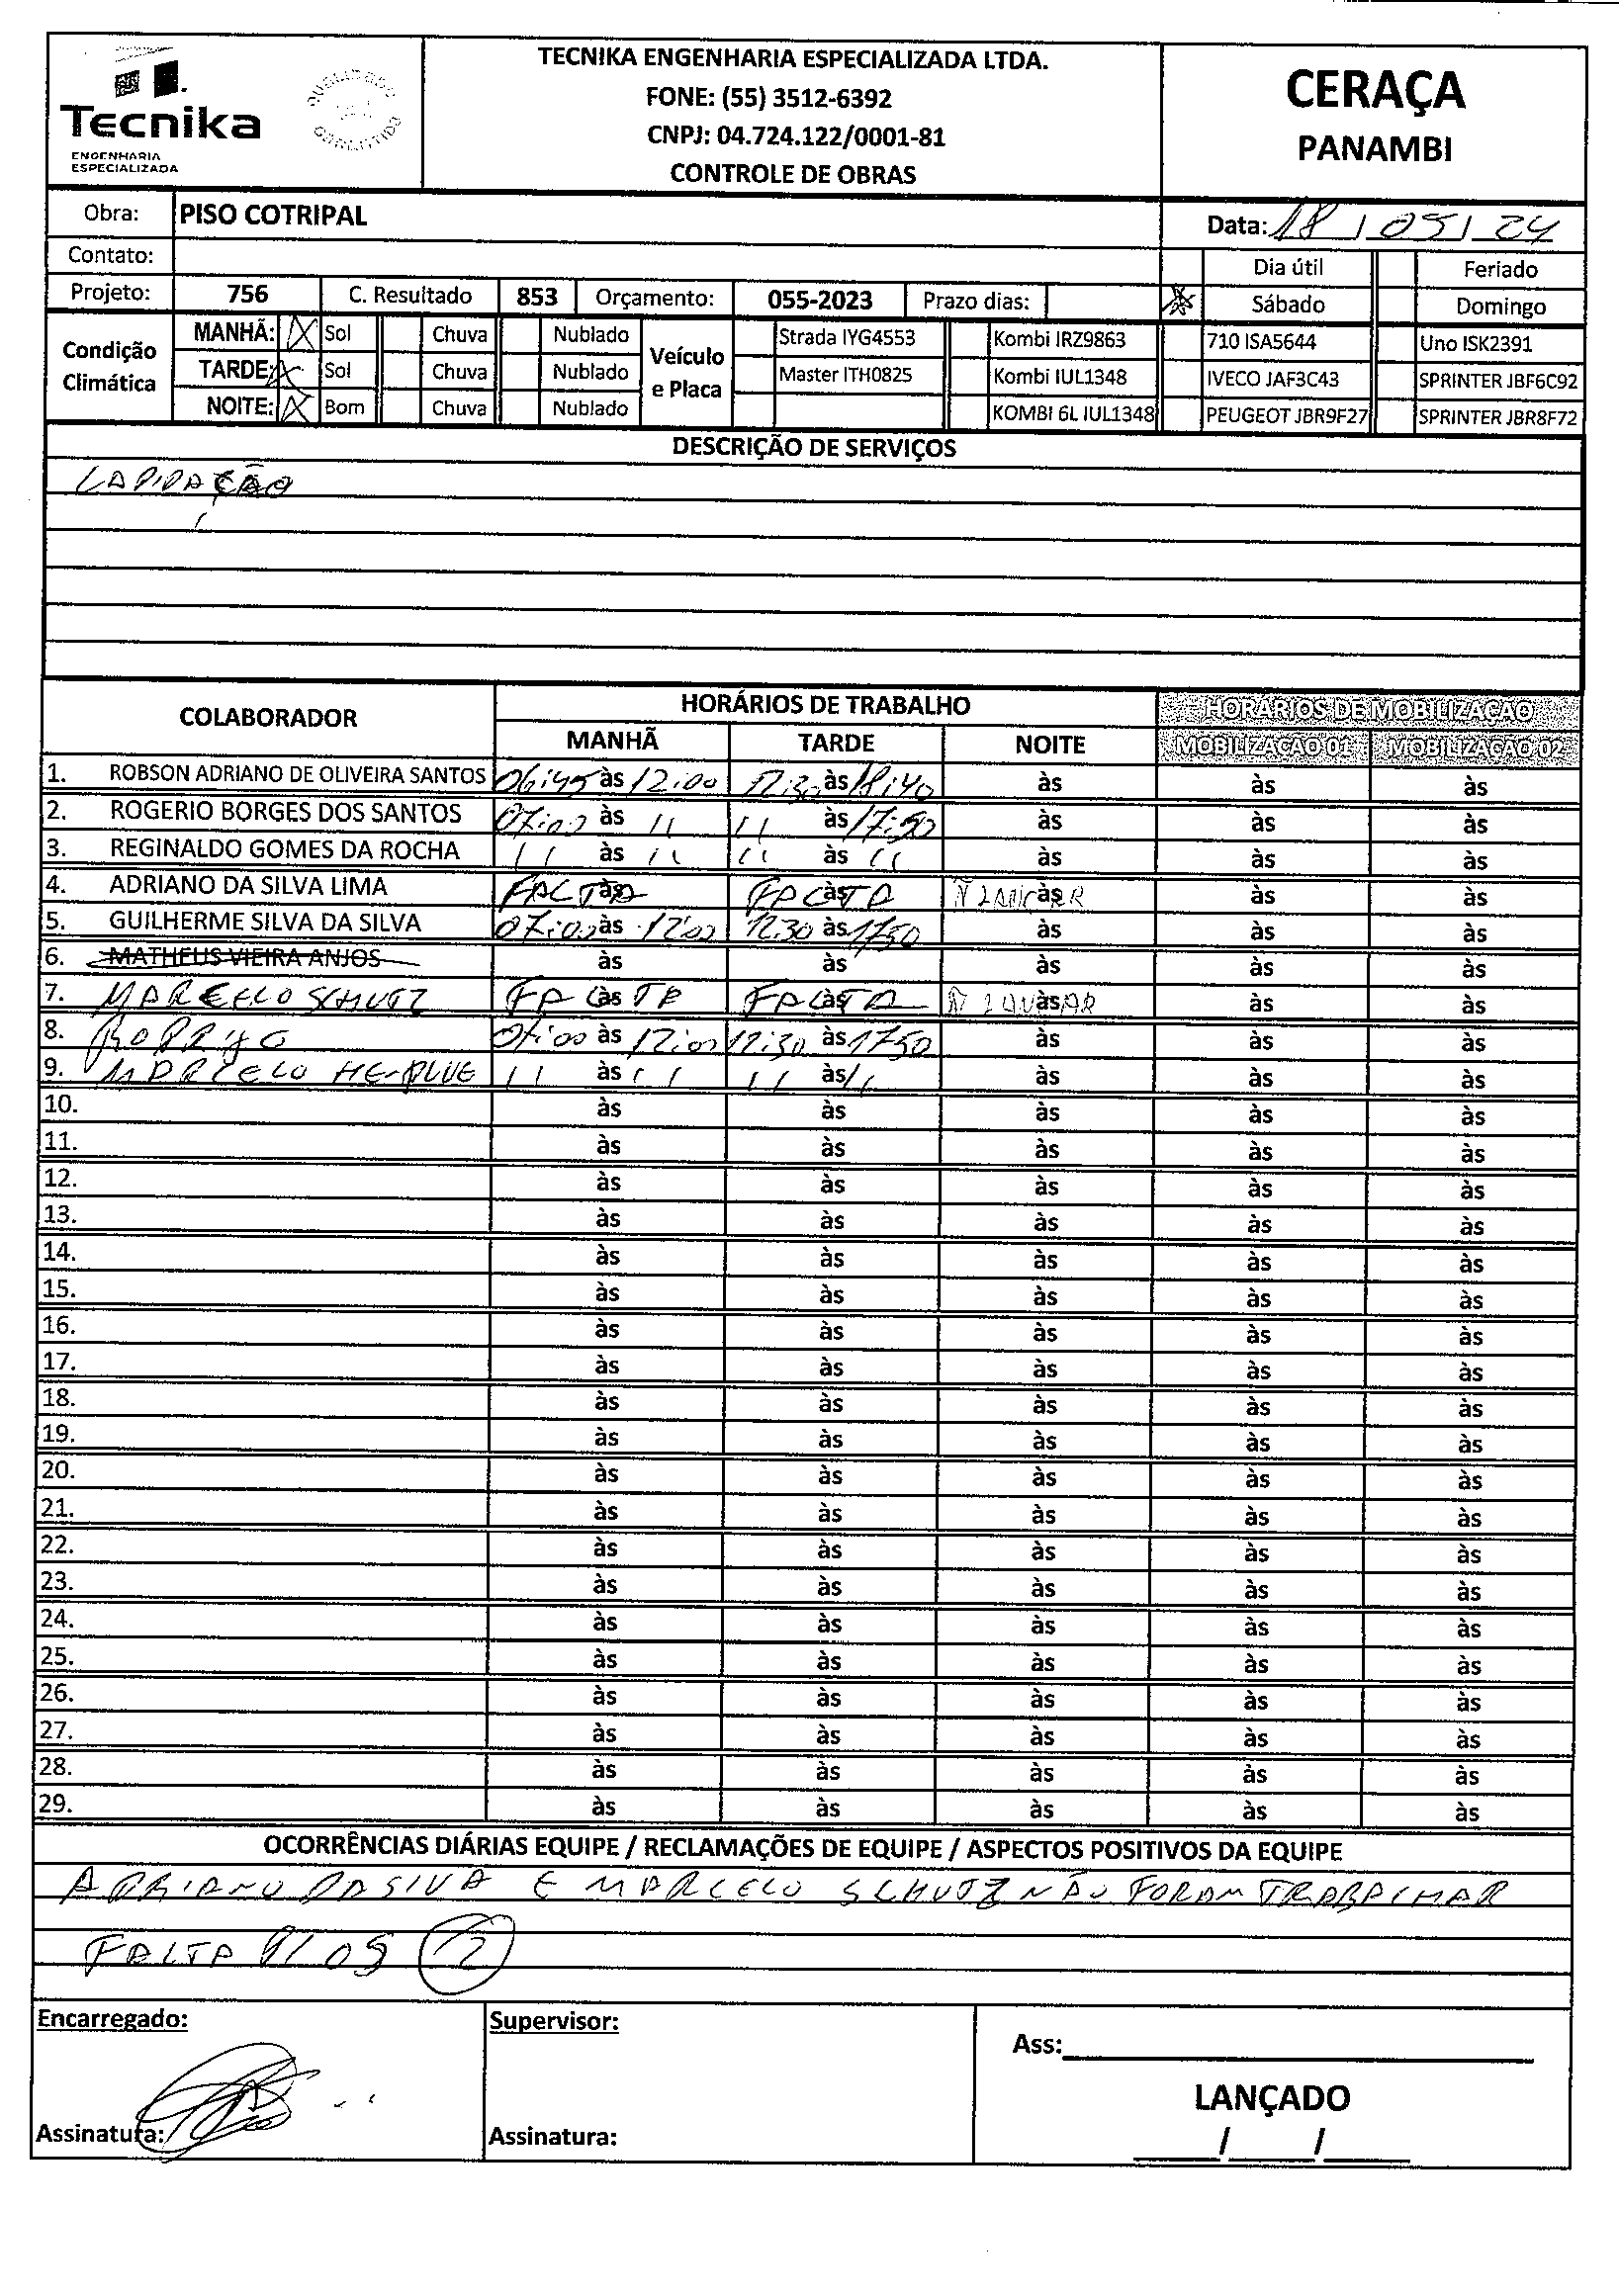 Tecnika
ENGENHARIA
ESPECIALIZADA
TECNIKA ENGENHARIA ESPECIALIZADA LTDA.
FONE: (55) 3512-6392
CNPJ: 04.724.122/0001-81
CONTROLE DE OBRAS
CERAÇA
PANAMBI
Obra: PISO COTRIPAL
Data: 18/05/24
Contato:
Dia útil Feriado
Projeto: 756 C. Resultado 853 Orçamento: 055-2023 Prazo dias: X Sábado Domingo
Condição Climática
MANHÃ: X Sol Chuva Nublado
TARDE: X Sol Chuva Nublado
NOITE: X Bom Chuva Nublado
Veículo e Placa
Strada IYG4553 Kombi IRZ9863 710 ISA5644 Uno ISK2391
Master ITH0825 Kombi IUL1348 IVECO JAF3C43 SPRINTER JBF6C92
KOMBI 6L IUL1348 PEUGEOT JBR9F27 SPRINTER JBR8F72
DESCRIÇÃO DE SERVIÇOS
LAPIDAÇÃO
COLABORADOR HORÁRIOS DE TRABALHO HORÁRIOS DE MOBILIZAÇÃO
MANHÃ TARDE NOITE MOBILIZAÇÃO 01 MOBILIZAÇÃO 02
1. ROBSON ADRIANO DE OLIVEIRA SANTOS 06:45 às 12:00 12:30 às 18:40 às às às
2. ROGERIO BORGES DOS SANTOS 07:00 às 11 11 às 17:50 às às às
3. REGINALDO GOMES DA ROCHA 11 às 11 11 às 11 às às às
4. ADRIANO DA SILVA LIMA FALTA às FALTA às às às às
5. GUILHERME SILVA DA SILVA 07:00 às 12:00 12:30 às 1750 às às às
6. MATHEUS VIEIRA ANJOS às às às às às
7. MARCELO SCHUTZ FALTA às FALTA às às às às
8. RODRIGO 07:00 às 12:00 12:30 às 1750 às às às
9. MARCELO às 11 11 às 11 às às às
10. às às às às às
11. às às às às às
12. às às às às às
13. às às às às às
14. às às às às às
15. às às às às às
16. às às às às às
17. às às às às às
18. às às às às às
19. às às às às às
20. às às às às às
21. às às às às às
22. às às às às às
23. às às às às às
24. às às às às às
25. às às às às às
26. às às às às às
27. às às às às às
28. às às às às às
29. às às às às às
OCORRÊNCIAS DIÁRIAS EQUIPE / RECLAMAÇÕES DE EQUIPE / ASPECTOS POSITIVOS DA EQUIPE
ADRIANO DA SILVA E MARCELO SCHUTZ NÃO FORAM TRABALHAR
FALTA P/ OS 2
Encarregado: Supervisor:
Ass:
LANÇADO
Assinatura: Assinatura: / /